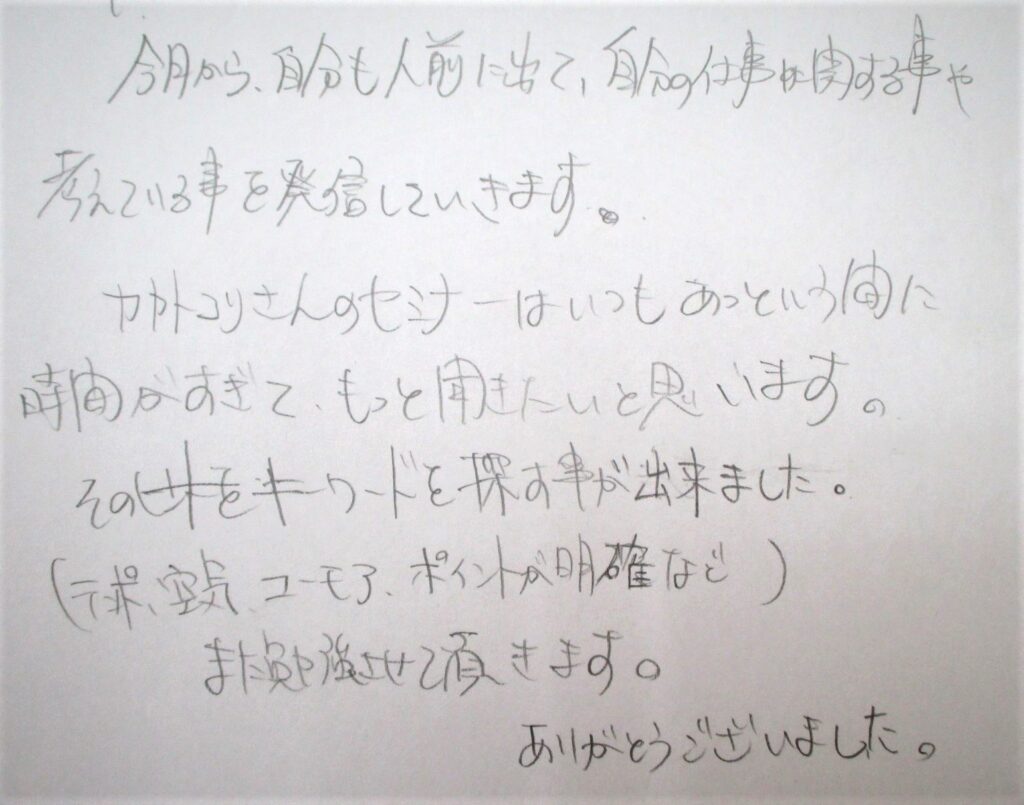 今月から、自分も人前に出て、自分の仕事に関する事や
考えている事を発信していきます。
カカトコリさんのセミナーはいつもあっという間に
時間がすぎて、もっと聞きたいと思います。
その中をキーワードを探す事が出来ました。
(テンポ、空気、ユーモア、ポイントが明確など)
また勉強させて頂きます。
ありがとうございました。